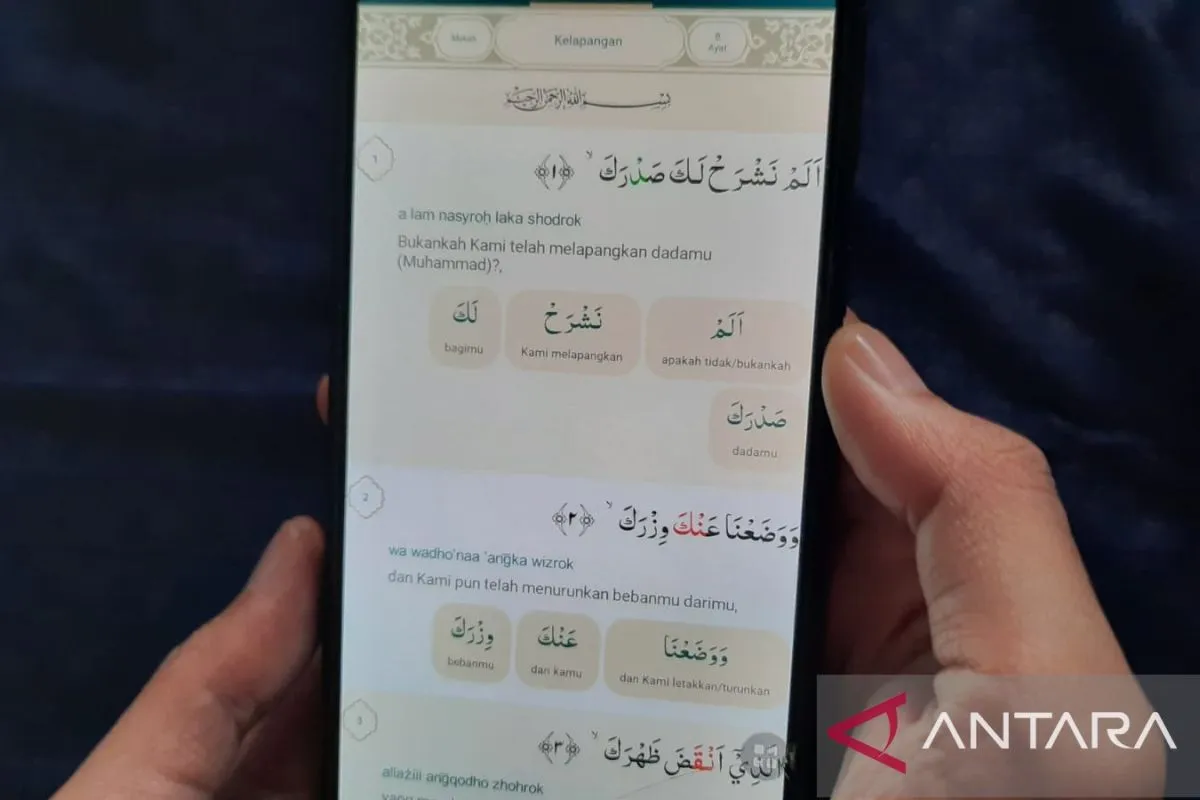 Mekah
Kelapangan
8
Ayat
بِسْمِ اللّٰهِ الرَّحْمٰنِ الرَّحِيْمِ
1
اَلَمْ نَشْرَحْ لَكَ صَدْرَكَ ۙ ﴿١﴾
a lam nasyroḥ laka shodrok
Bukankah Kami telah melapangkan dadamu
(Muhammad)?,
اَلَمْ نَشْرَحْ لَكَ
apakah tidak/bukankah Kami melapangkan bagimu
صَدْرَكَ
dadamu
2
وَوَضَعْنَا عَنْكَ وِزْرَكَ ۙ ﴿٢﴾
wa wadho'naa 'ang̅ka wizrok
dan Kami pun telah menurunkan bebanmu darimu,
وَوَضَعْنَا عَنْكَ وِزْرَكَ
dan Kami letakkan/turunkan dari kamu bebanmu
3
الَّذِيْٓ اَنْقَضَ ظَهْرَكَ ۙ ﴿٣﴾
allażiii ang̅qodho zhohrok
yang
ANTARA